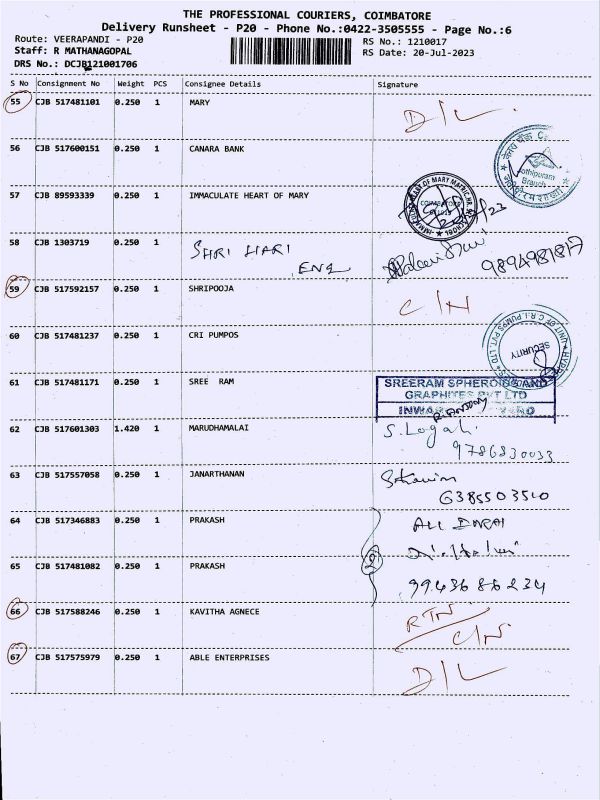 THE PROFESSIONAL COURIERS, COIMBATORE
Delivery Runsheet - P20 - Phone No.:0422-3505555 - Page No.:6
Route: VEERAPANDI - P20 RS No.: 1210017
Staff: R MATHANAGOPAL RS Date: 20-Jul-2023
DRS No.: DCJB121001706
S No Consignment No Weight PCS Consignee Details Signature
55 CJB 517481101 0.250 1 MARY D/L
56 CJB 517600151 0.250 1 CANARA BANK
Branch
57 CJB 89593339 0.250 1 IMMACULATE HEART OF MARY
58 CJB 1303719 0.250 1 SHRI HARI
ENG 9894981817
59 CJB 517592157 0.250 1 SHRIPOOJA C/N
60 CJB 517481237 0.250 1 CRI PUMPOS
SECURITY
61 CJB 517481171 0.250 1 SREE RAM SREERAM SPHEROIDS AND
GRAPHITES PVT LTD
62 CJB 517601303 1.420 1 MARUDHAMALAI S. Logah
9786830033
63 CJB 517557058 0.250 1 JANARTHANAN
6385503510
64 CJB 517346883 0.250 1 PRAKASH ALI DURAI
65 CJB 517481082 0.250 1 PRAKASH 2
9943686234
66 CJB 517588246 0.250 1 KAVITHA AGNECE RTN
C/N
67 CJB 517575979 0.250 1 ABLE ENTERPRISES D/L